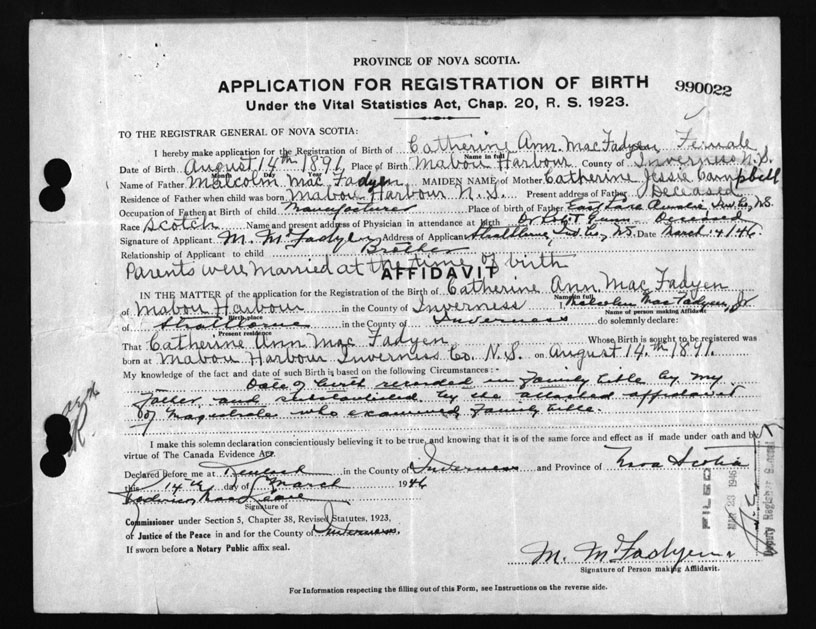 PROVINCE OF NOVA SCOTIA.
APPLICATION FOR REGISTRATION OF BIRTH
990022
Under the Vital Statistics Act, Chap. 20, R. S. 1923.
TO THE REGISTRAR GENERAL OF NOVA SCOTIA:
I hereby make application for the Registration of Birth of Catherine Ann MacFadyen Female
Name in full
Date of Birth August 14th 1891 Place of Birth Mabou Harbour County of Inverness N.S.
Month Day Year
Name of Father Malcolm MacFadyen MAIDEN NAME of Mother Catherine Jessie Campbell
Residence of Father when child was born Mabou Harbour N.S. Present address of Father Deceased
Occupation of Father at Birth of child Manufacturer Place of birth of Father East Lake Ainslie Inv. Co., N.S.
Race Scotch Name and present address of Physician in attendance at birth Dr. Deceased
Signature of Applicant M. McFadyen Address of Applicant Strathlorne, Inv. Co., N.S. Date March 4/46.
Relationship of Applicant to child Brother
Parents were married at the time of birth
AFFIDAVIT
IN THE MATTER of the application for the Registration of the Birth of Catherine Ann MacFadyen
Name in full
of Mabou Harbour in the County of Inverness Malcolm MacFadyen, Jr
Birth place
Name of person making Affidavit
of Strathlorne in the County of Inverness do solemnly declare:
Present residence
That Catherine Ann MacFadyen Whose Birth is sought to be registered was
born at Mabou Harbour Inverness Co. N.S. on August 14.th 1891.
My knowledge of the fact and date of such Birth is based on the following Circumstances:-
Date of birth recorded in family bible by my
father and substantiated by the attached affidavit
of Magistrate who examined family bible.
I make this solemn declaration conscientiously believing it to be true, and knowing that it is of the same force and effect as if made under oath and by
virtue of The Canada Evidence Act.
Declared before me at in the County of Inverness and Province of Nova Scotia
this 14th day of March 1946
Signature of
Commissioner under Section 5, Chapter 38, Revised Statutes, 1923,
or Justice of the Peace in and for the County of Inverness.
If sworn before a Notary Public affix seal.
FILED
MAR 23 1946
Deputy Registrar General
M. McFadyen
Signature of Person making Affidavit.
For Information respecting the filling out of this Form, see Instructions on the reverse side.